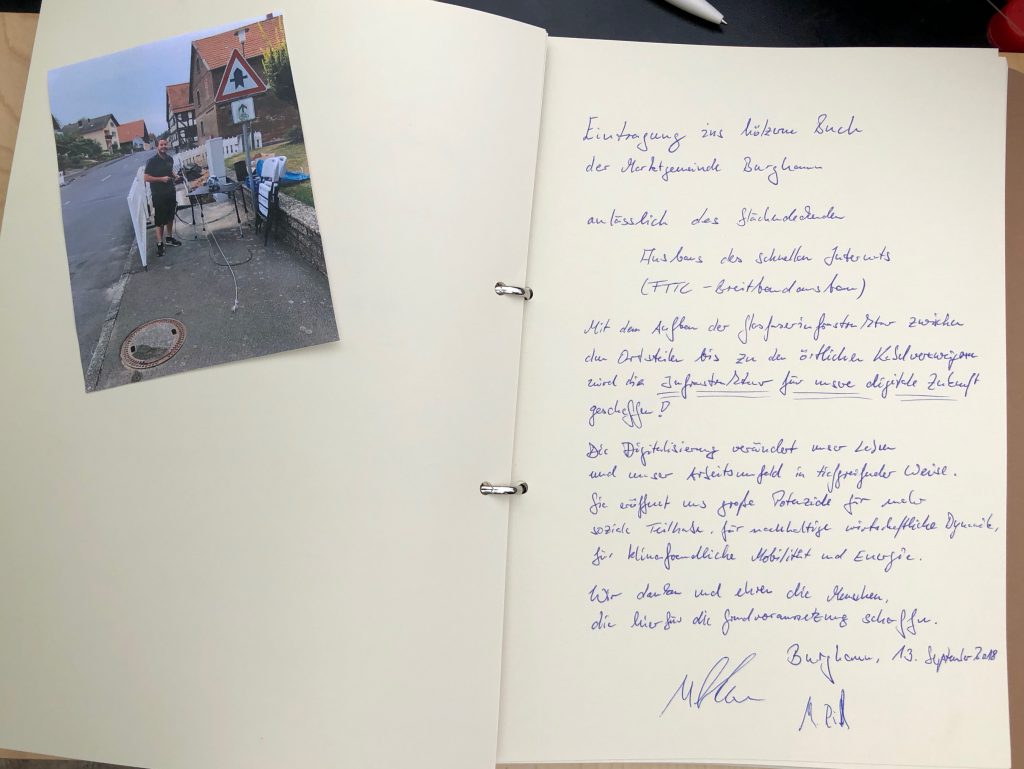 Eintragung ins hölzerne Buch
der Marktgemeinde Burghaun
anlässlich des flächendeckenden
Ausbaus des schnellen Internets
(FTTC - Breitbandausbau)
Mit dem Aufbau der Glasfaserinfrastruktur zwischen
den Ortsteilen bis zu den örtlichen Kabelverzweigern
wird die Infrastruktur für unsere digitale Zukunft
geschaffen!
Die Digitalisierung verändert unser Leben
und unser Arbeitsumfeld in tiefgreifender Weise.
Sie eröffnet uns große Potenziale für mehr
soziale Teilhabe, für nachhaltige wirtschaftliche Dynamik,
für klimafreundliche Mobilität und Energie.
Wir danken und ehren die Menschen,
die hier für die Grundvoraussetzung schaffen.
Burghaun, 13. September 2018